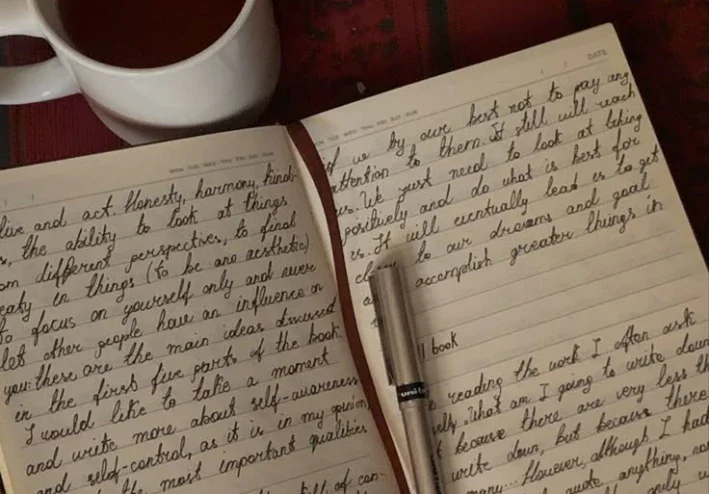 live and act. Honesty, harmony, kind-
s, the ability to look at things
om different perspectives, to find
eaty in things (to be are aesthetic)
to focus on yourself only and never
let other people have an influence on
you: these are the main ideas discussed
in the first five parts of the book.
I would like to take a moment
and write more about self-awareness
and self-control, as it is in my opinion,
the most important qualities
of con-
DATE
if we by our best not to pay any
attention to them. It still will reach
us. We just need to look at being
positively and do what is best for
us. It will eventually lead us to get
to our dreams and goal
accomplish greater things in
book
reading the work I often ask
What am I going to write down
because there are very less th
write down, but because there
many... However, although I had
quote anything, nor
only